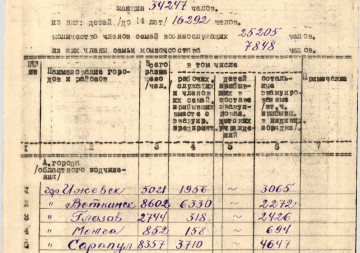 женщин 34247 человек.
из них: детей /до 14 лет/ 16292 челов.
количество членов семей военнослужащих 25205 челов.
из них члены семьи комначсостава 7848 чел.
Наименование горо- дов и районов
Всего
/чел./
в том числе
рабочих, служащих и членов их семей, прибывших вместе с эвакуир. предприят.
детей прибыв- ших в составе
детских
осталь- ные эвакуиро- ванные /в т.ч. прибывш. в индивид. порядке/
Примечание
1 2 3 4 5 6 7
А. города /областного подчине- ния/
1 гор Ижевск 5021 1956 ~ 3065
2 " Воткинск 8602 6330 ~ 2272
3 " Глазов 2744 318 ~ 2426
4 " Можга 852 158 ~ 694
5 " Сарапул 8357 3710 ~ 4647